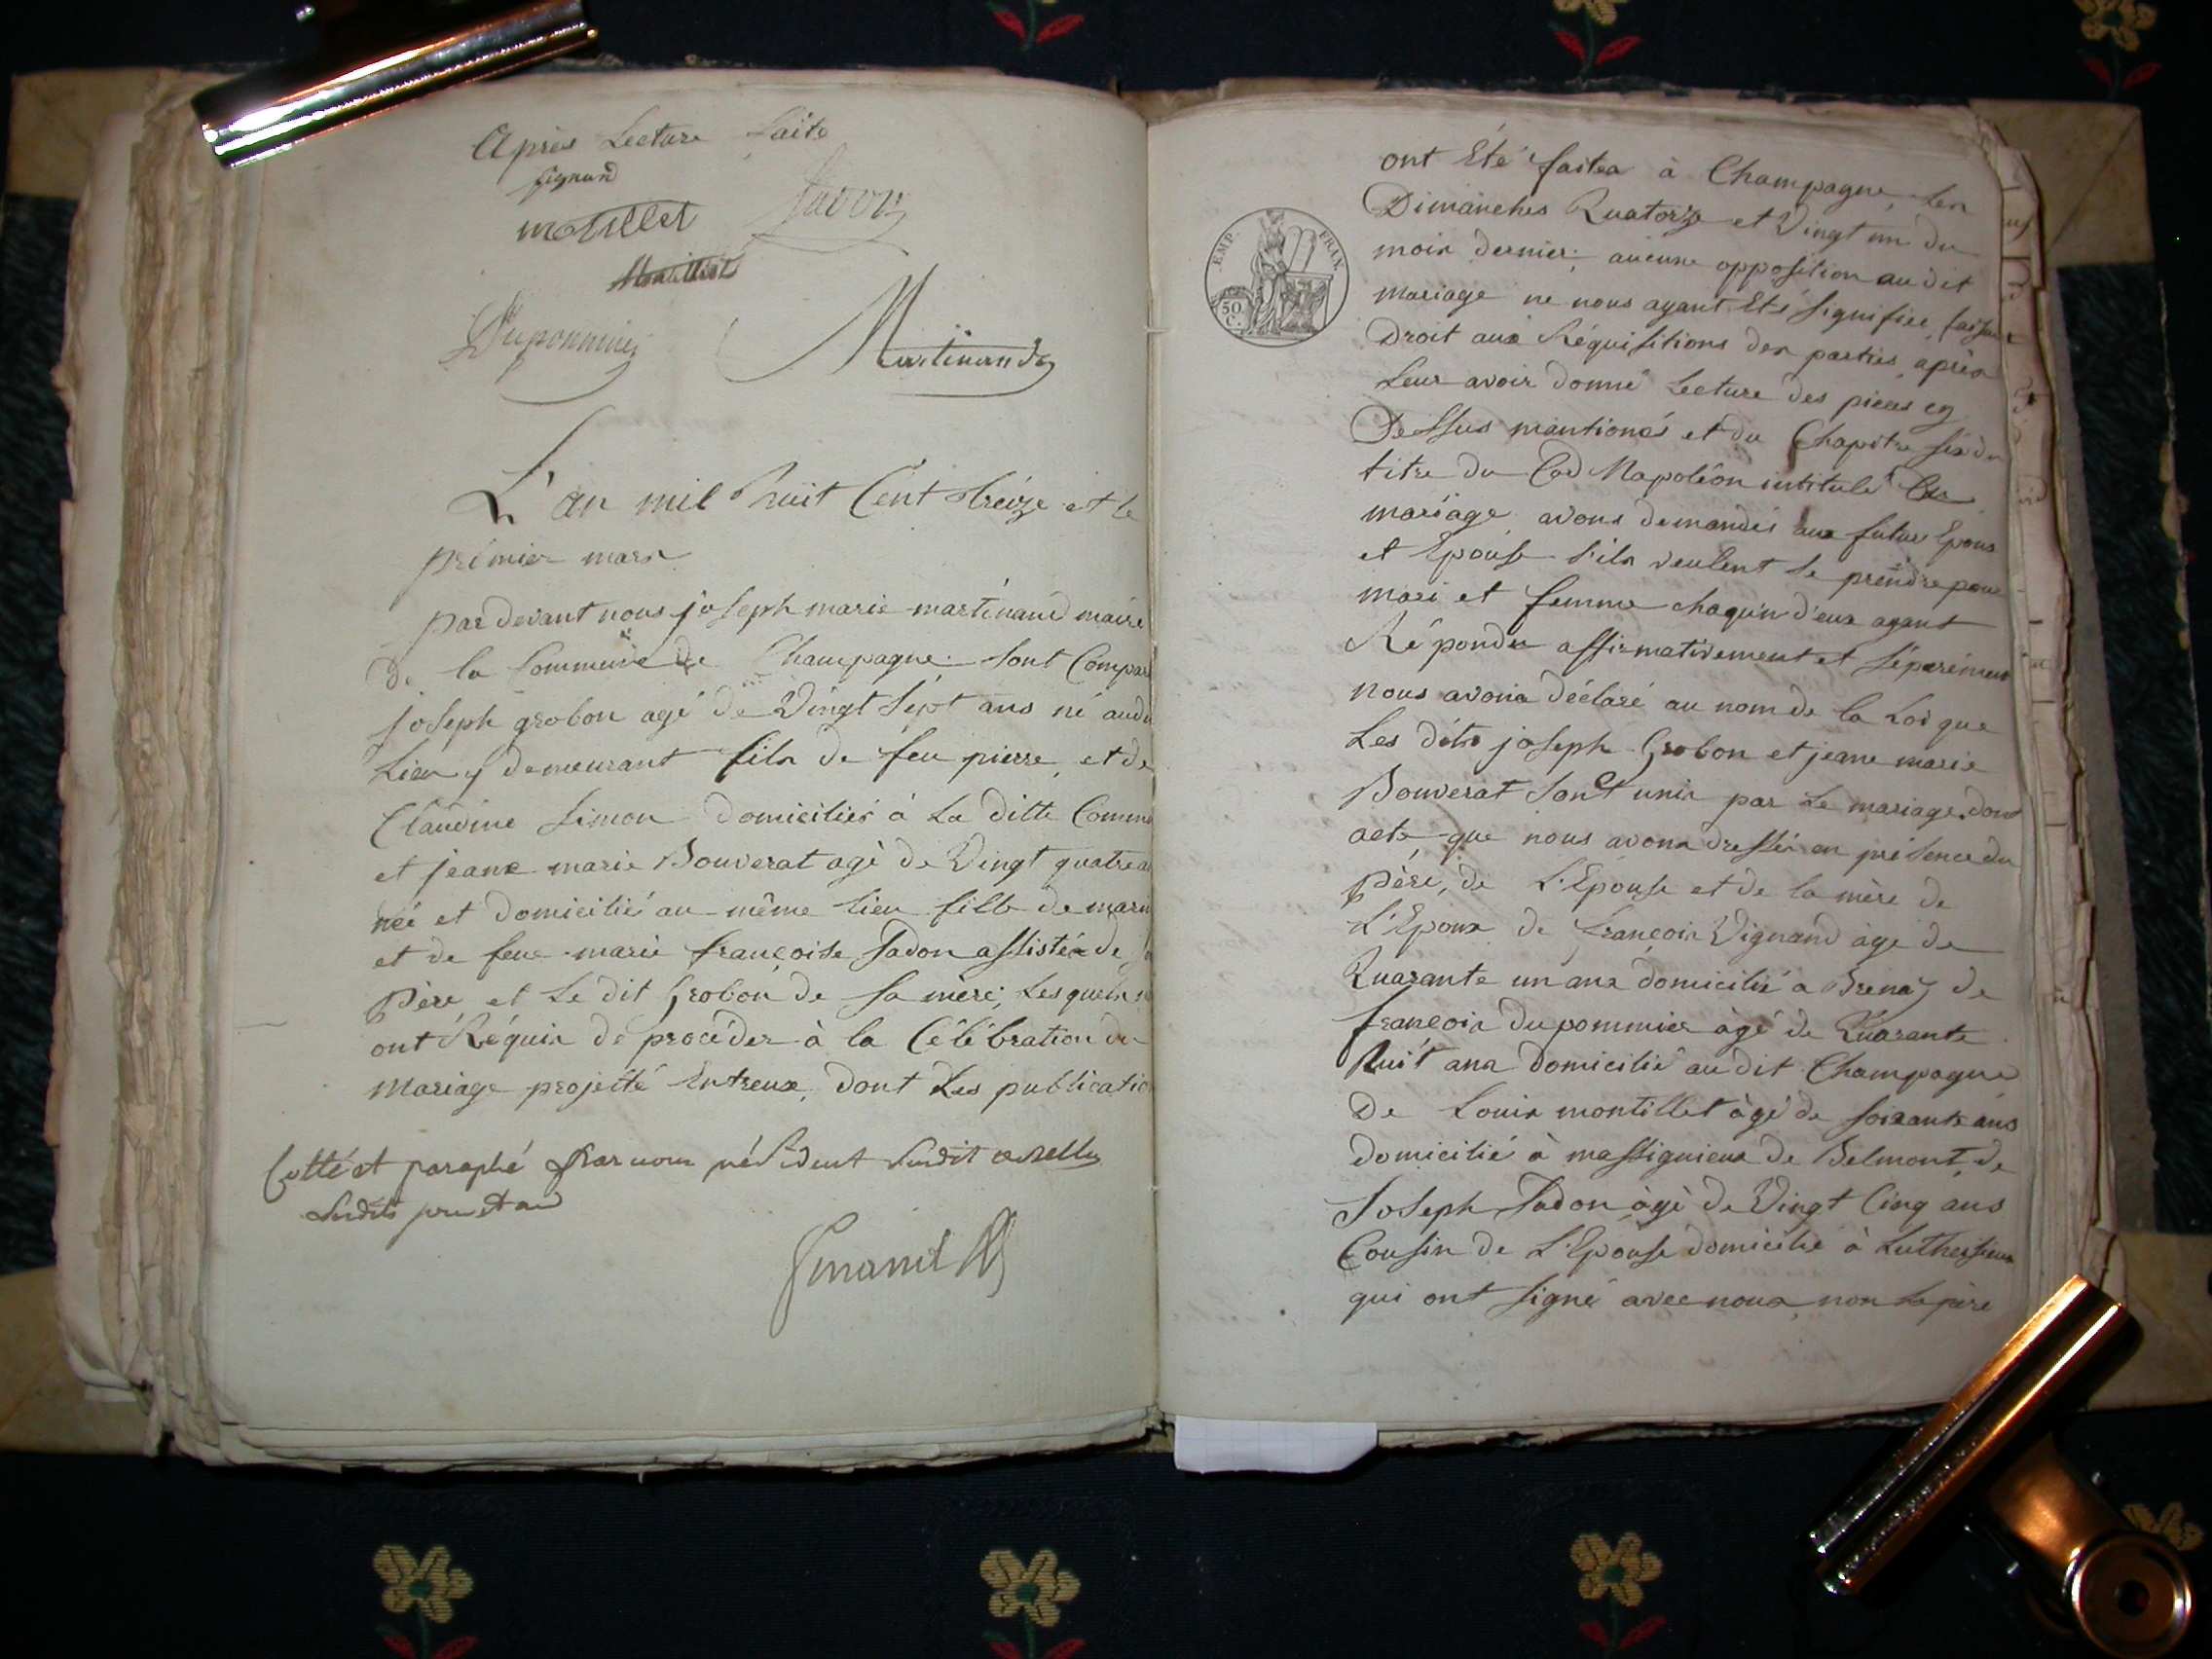 Après Lecture faite
Vignand
motillet Jadon
Montillet
Dupommier Martinand
L'an mil huit Cent treize et le
prémier mars
par devant nous joseph marie martinand maire
de la Commune de Champagne sont Compar
joseph grobon agé de Vingt sept ans né audi
Lieu y demeurant fils de feu pierre, et de
Claudine Simon domiciliés à La ditte Commu
et jeane marie Bouverat agé de Vingt quatre a
neé et domicilié au même lieu fille de
et de feue marie françoise Jadon assistée de
père et Le dit Grobon de sa mère; Lesquels
ont Réquis de procéder à la Célébration du
mariage projetté Entreux, dont Les publicatio
Cotté et paraphé par nous président
EMP. FRAN.
50 C.
ont Été faites à Champagne, Les
Dimanches Quatorze et Vingt un du
mois dernier; aucune opposition audit
mariage ne nous ayant Eté signifiée, faisant
Droit aux Réquisitions des parties, après
Leur avoir donné Lecture des pieces cy
Dessus mantionés et du Chapitre six du
titre du Cod Napoléon intitulé Du
mariage avons demandés aux futur Epoux
et Epouse s'ils veulent se prendre pour
mari et femme chaqu'un d'eux ayant
Répondu affirmativement et séparément
nous avons déclaré au nom de la Loi que
Les dits joseph Grobon et jeane marie
Bouverat sont unis par Le mariage, dont
acte, que nous avons dressés en présence du
père, de L'Epouse et de la mère de
L'Epoux de françois Vignand agé de
Quarante un ans domicilié a Brenaz de
françois dupommier àgé de Quarante
huit ans domicilié audit Champagne
De Louis montillet àgé de soixante ans
domicilié à massignieux de Belmont, de
Joseph Jadon àgé de Vingt Cinq ans
Cousin de L'Epouse domicilié à Luthezieux
qui ont signé avec nous, non Le père